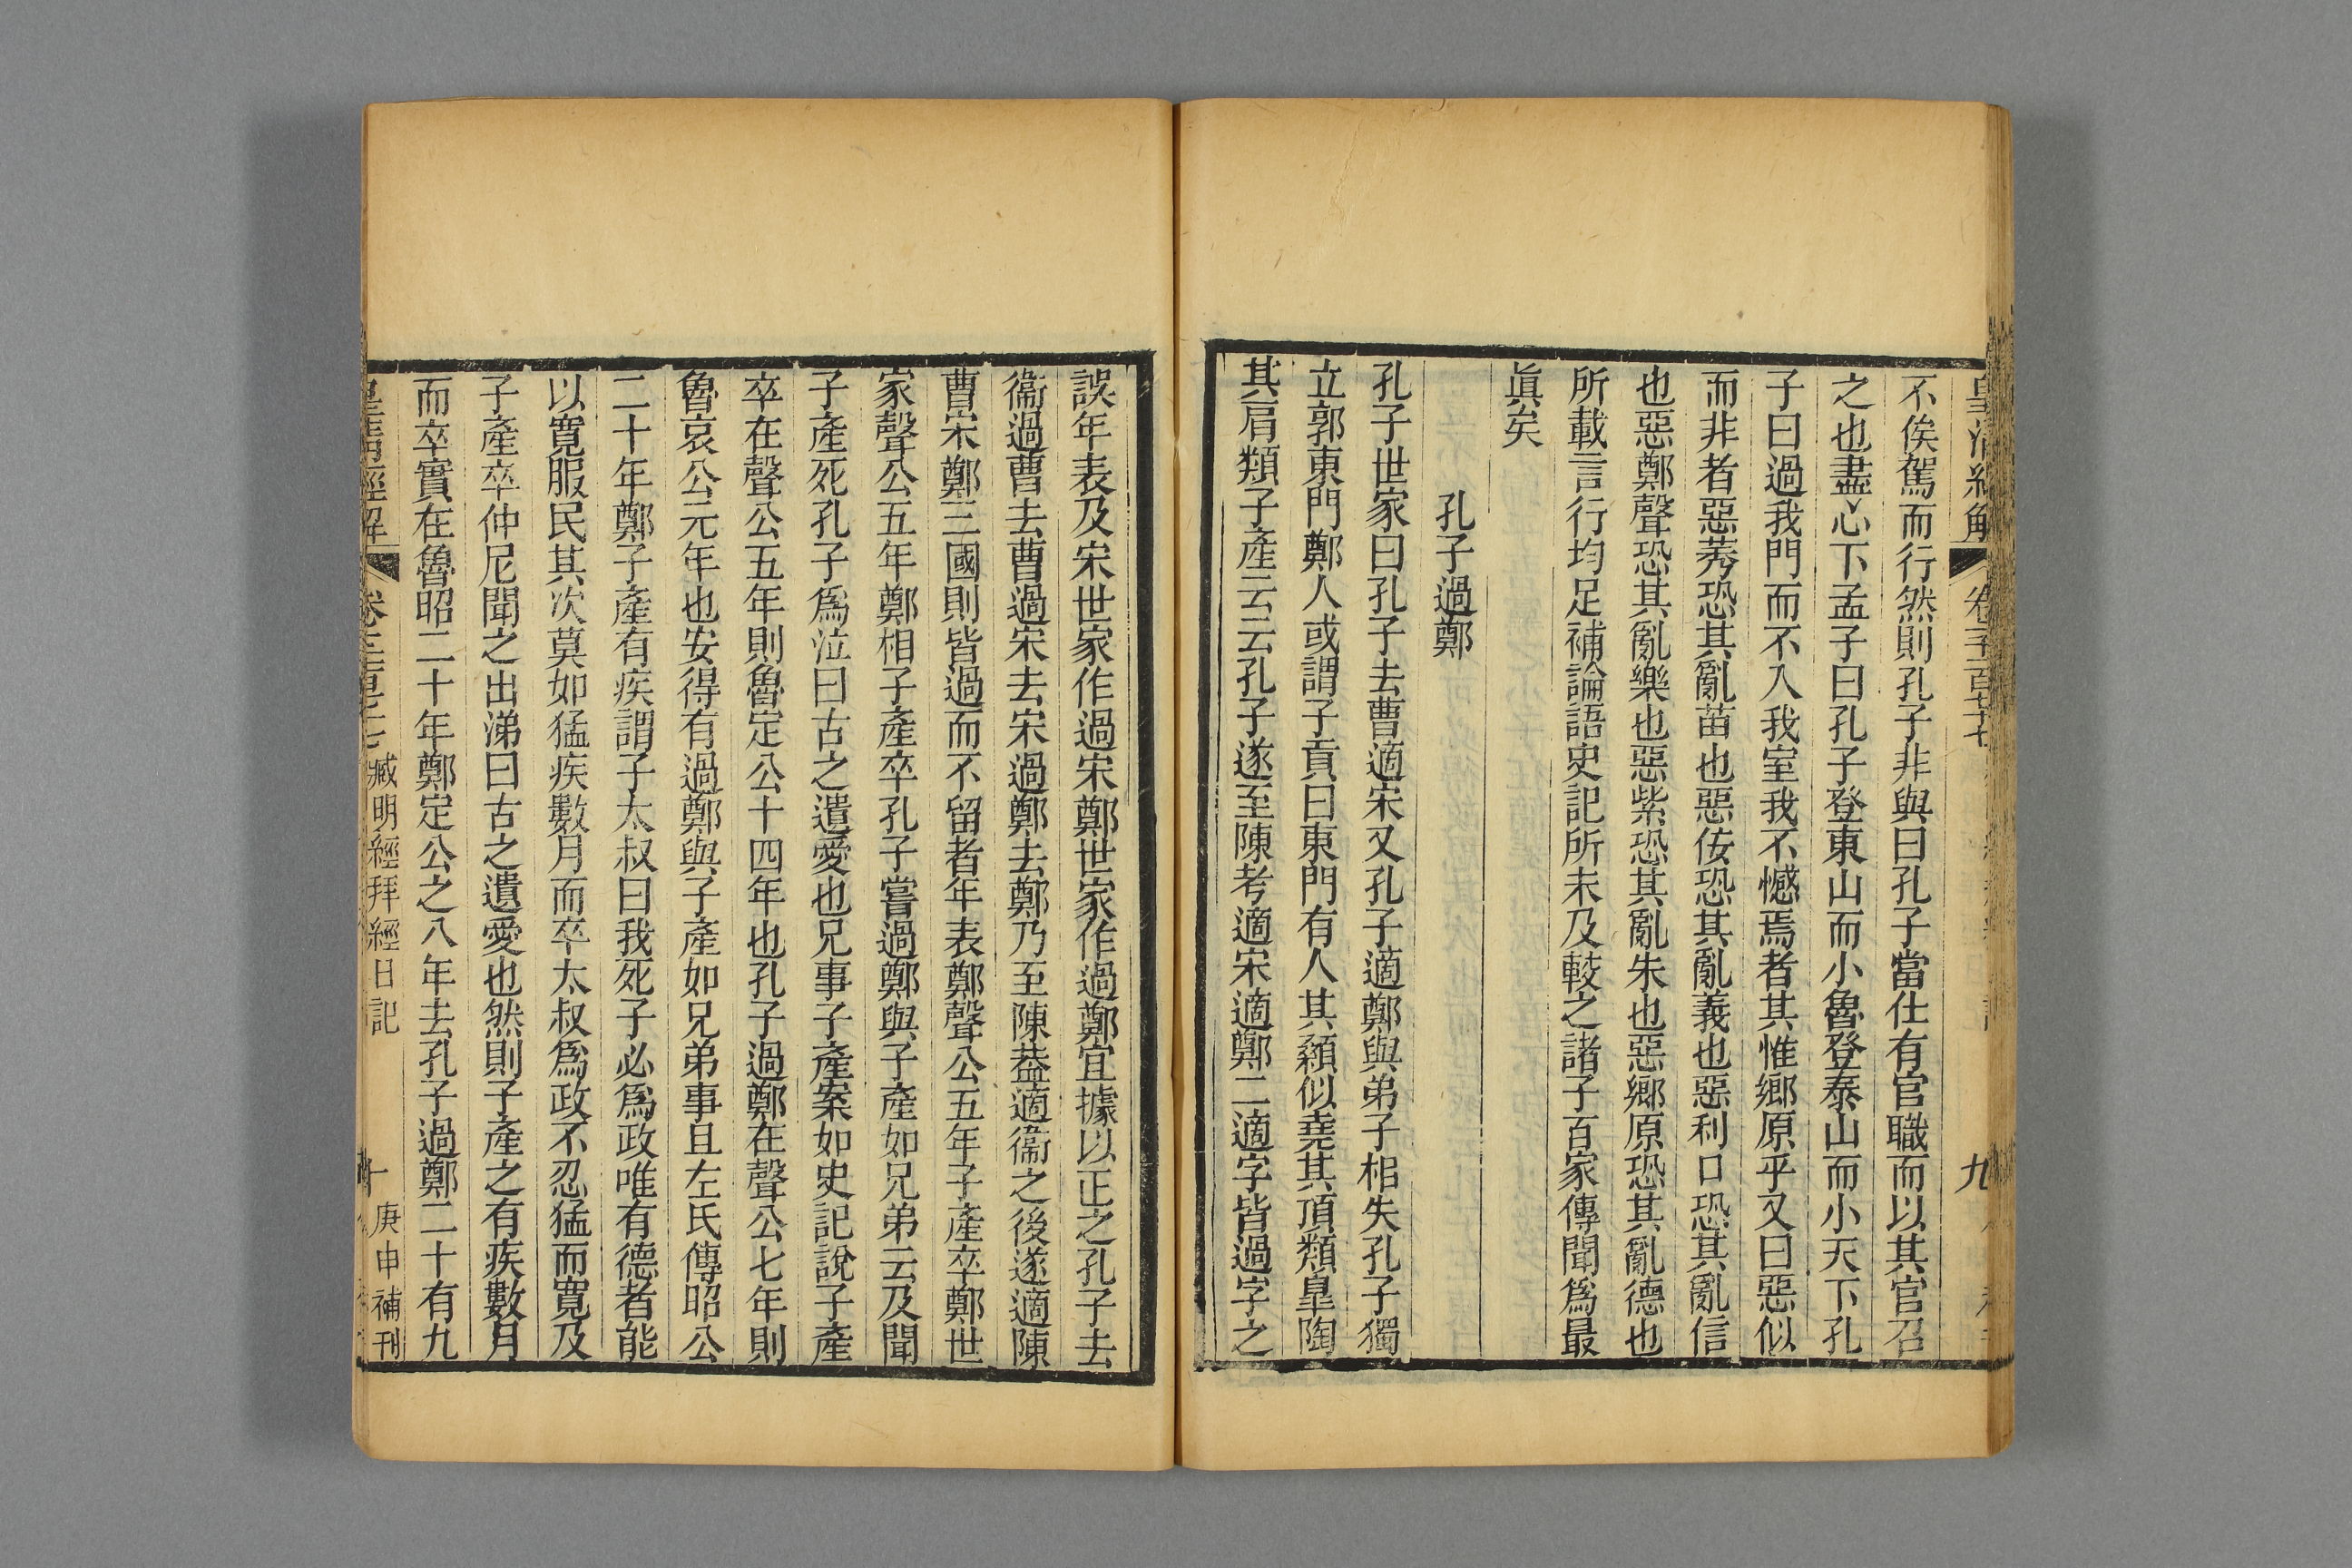 皇清經解 卷 九
不俟駕而行然則孔子非與曰孔子當仕有官職而以其官召
之也盡心下孟子曰孔子登東山而小魯登泰山而小天下孔
子曰過我門而不入我室我不憾焉者其惟鄉原乎又曰惡似
而非者惡莠恐其亂苗也惡佞恐其亂義也惡利口恐其亂信
也惡鄭聲恐其亂樂也惡紫恐其亂朱也惡鄉原恐其亂德也
所載言行均足補論語史記所未及較之諸子百家傳聞爲最
眞矣
孔子過鄭
孔子世家曰孔子去曹適宋又孔子適鄭與弟子相失孔子獨
立郭東門鄭人或謂子貢曰東門有人其顙似堯其項類皐陶
其肩類子產云云孔子遂至陳考適宋適鄭二適字皆過字之
誤年表及宋世家作過宋鄭世家作過鄭宜據以正之孔子去
衞過曹去曹過宋去宋過鄭去鄭乃至陳葢適衞之後遂適陳
曹宋鄭三國則皆過而不留者年表鄭聲公五年子產卒鄭世
家聲公五年鄭相子產卒孔子嘗過鄭與子產如兄弟云及聞
子產死孔子爲泣曰古之遺愛也兄事子產案如史記說子產
卒在聲公五年則魯定公十四年也孔子過鄭在聲公七年則
魯哀公元年也安得有過鄭與子產如兄弟事且左氏傳昭公
二十年鄭子產有疾謂子太叔曰我死子必爲政唯有德者能
以寬服民其次莫如猛疾數月而卒太叔爲政不忍猛而寬及
子產卒仲尼聞之出涕曰古之遺愛也然則子產之有疾數月
而卒實在魯昭二十年鄭定公之八年去孔子過鄭二十有九
皇清經解 卷 臧明經拜經日記 十 庚申補刊